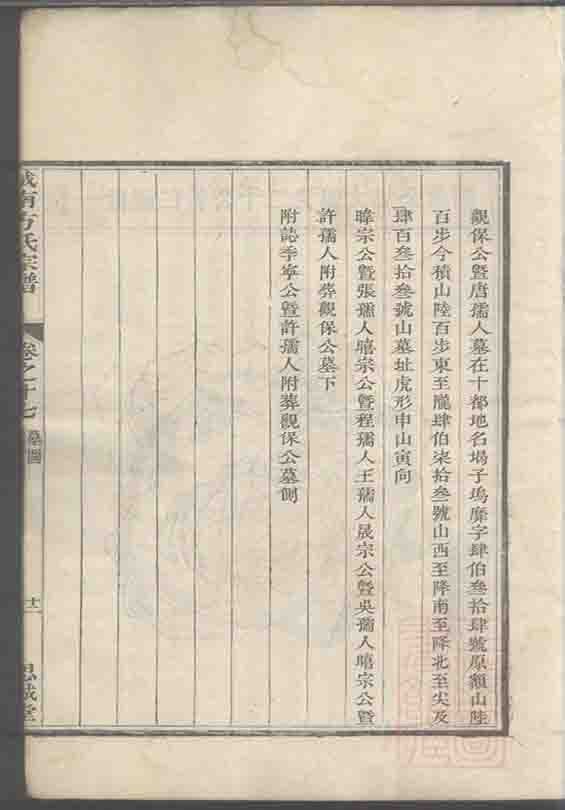 觀保公暨唐孺人墓在十都地名塲子塢靡字肆伯叁拾肆號原額山陸
百步今積山陸百步東至隴肆伯柒拾叁號山西至降南至降北至尖及
肆百叁拾叁號山墓址虎形申山寅向
暐宗公暨張孺人暿宗公暨程孺人王孺人晟宗公暨吳孺人暿宗公暨
許孺人附葬觀保公墓下
附誌季寧公暨許孺人附葬觀保公墓側
城南方氏宗譜
卷之十七
墓圖
思誠堂